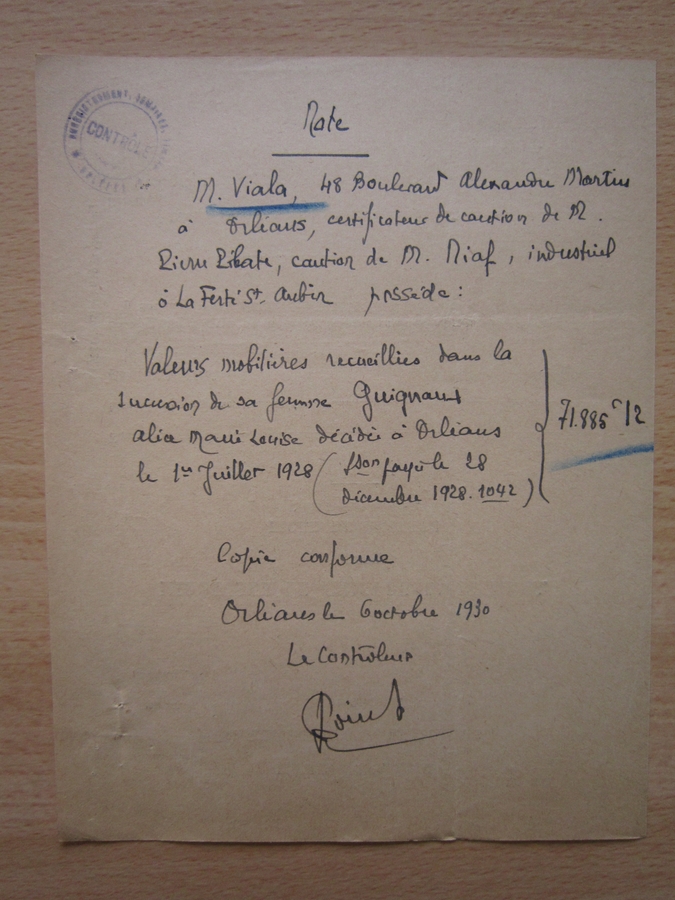 ENREGISTREMENT, DOMAINES,
CONTRÔLE
Note
M. Viala, 48 Boulevard Alexandre Martin
à Orléans, certificateur de caution de M.
Ribate, caution de M. Niaf, industriel
à La Ferté St. Aubin possède :
Valeurs mobilières recueillies dans la
succession de sa femme Guignard
alice Marie Louise décédée à Orléans
le 1er Juillet 1928 (sson payée le 28
décembre 1928. 1042)
71.885 f 12
Copie conforme
Orléans le 6 octobre 1930
Le Contrôleur